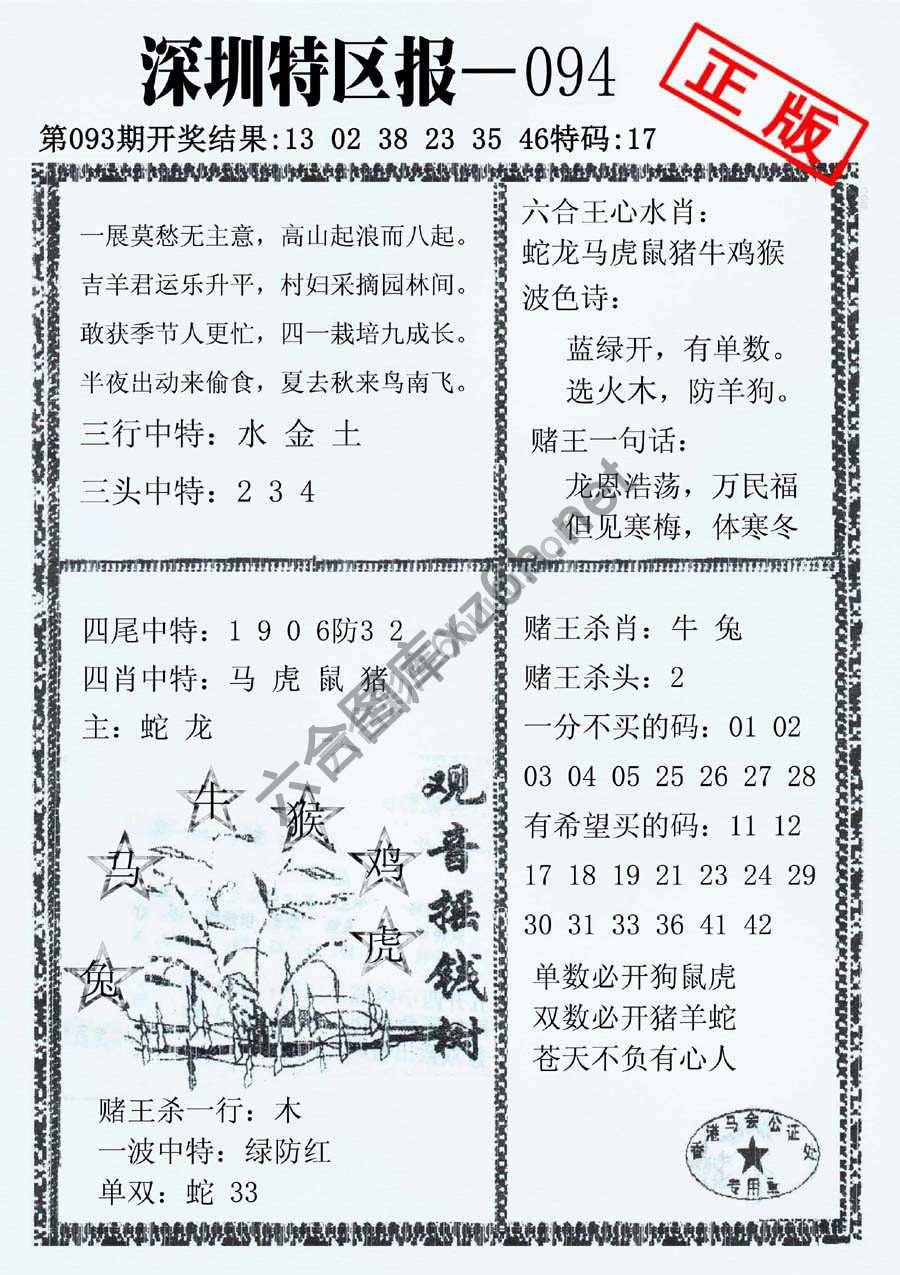 深圳特区报—094
正版
第093期开奖结果:13 02 38 23 35 46特码:17
一展莫愁无主意，高山起浪而八起。
吉羊君运乐升平，村妇采摘园林间。
敢获季节人更忙，四一栽培九成长。
半夜出动来偷食，夏去秋来鸟南飞。
三行中特：水 金 土
三头中特：2 3 4
六合王心水肖：
蛇龙马虎鼠猪牛鸡猴
波色诗：
蓝绿开，有单数。
选火木，防羊狗。
赌王一句话：
龙恩浩荡，万民福
但见寒梅，体寒冬
四尾中特：1 9 0 6防3 2
四肖中特：马 虎 鼠 猪
主：蛇 龙
牛
猴
马
鸡
虎
兔
观音摇钱树
赌王杀一行：木
一波中特：绿防红
单双：蛇 33
赌王杀肖：牛 兔
赌王杀头：2
一分不买的码：01 02
03 04 05 25 26 27 28
有希望买的码：11 12
17 18 19 21 23 24 29
30 31 33 36 41 42
单数必开狗鼠虎
双数必开猪羊蛇
苍天不负有心人
香港马会公证处
专用
六合图库xz6h.net